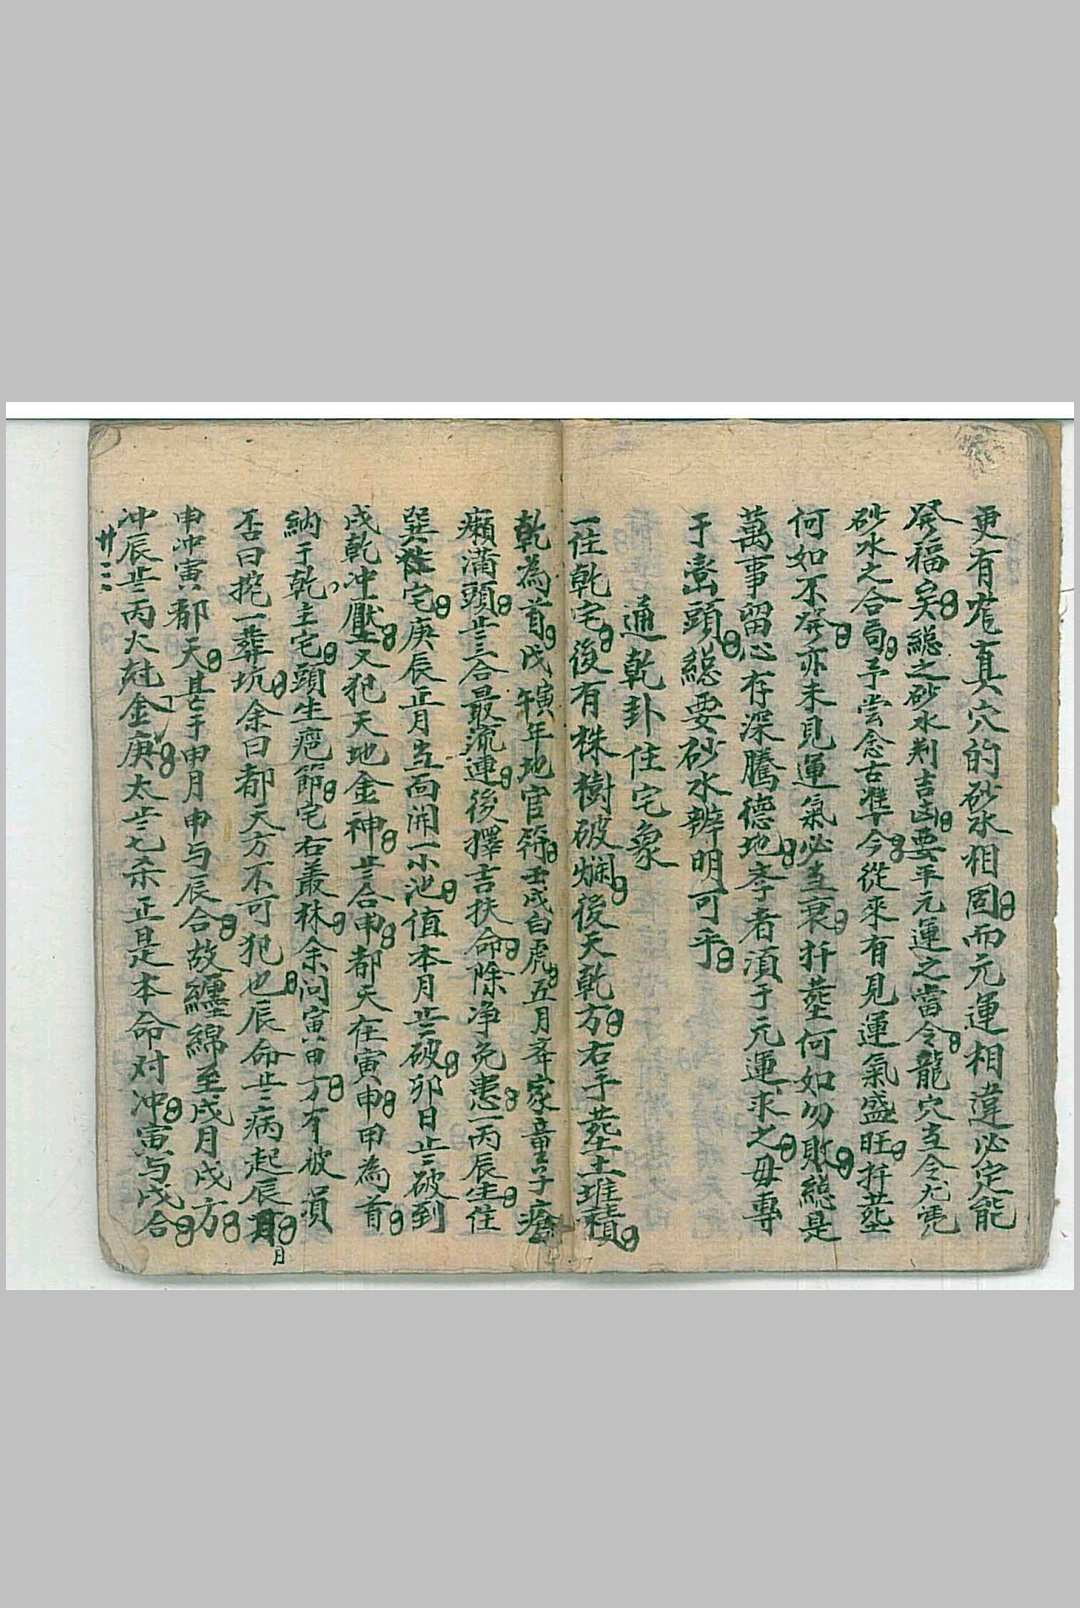 更有庬真穴的砂水相固而元運相違必定能
発福矣総之砂水判吉凶要乎元運之當令龍穴當令尤凴
砂水之合局予尝念古準今從來有見運氣盛旺扦塟
何如不発亦未見運氣必當衰扦塟何如勿敗総是
萬事留心存深騰德地李者須于元運求之毋專
于巒頭総要砂水辨明可乎
通乾卦住宅象
一住乾宅後有株樹破爛後天乾方右手塟土堆積
乾為首戊寅年地官符壬戌白虎五月斈家童子瘡
癩滿頭㱏三合最流連後擇吉扶命除净免患一丙辰生住
巽住宅庚辰㱏正月當面開一小池值本月㱏破卯日㱏破到
戌乾冲壓又犯天地金神㱏合申都天在寅申甲為首
納于乾主宅頭生疱節宅右叢林余问寅甲方有被損
否曰挖一葬坑余曰都天方不可犯也辰命㱏病起辰月日
申冲寅都天甚于申月申与辰合故纏綿至戌月戌方
冲辰㱏丙火尅金庚太㱏七杀正是本命对冲寅与戌合
廿三